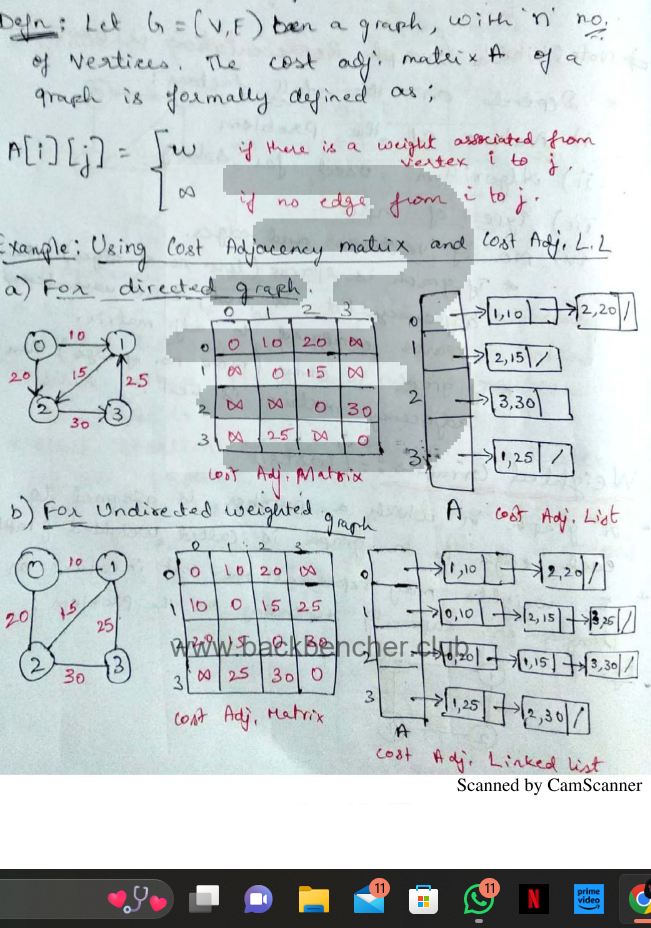 Defn: Let G = (V, E) be a graph, with 'n' no.
of vertices. The cost adj. matrix A of a
graph is formally defined as;
A[i][j] = { w if there is a weight associated from
vertex i to j.
∞ if no edge from i to j.
Example: Using Cost Adjacency matrix and Cost Adj. L.L
a) For directed graph.
0 10 1
20 15 25
2 30 3
0 1 2 3
0 0 10 20 ∞
1 ∞ 0 15 ∞
2 ∞ ∞ 0 30
3 ∞ 25 ∞ 0
Cost Adj. Matrix
0 1,10 2,20 /
1 2,15 /
2 3,30
3 1,25 /
A Cost Adj. List
b) For Undirected weighted graph
0 10 1
20 15 25
2 30 3
0 1 2 3
0 0 10 20 ∞
1 10 0 15 25
2 20 15 0 30
3 ∞ 25 30 0
Cost Adj. Matrix
0 1,10 2,20 /
1 0,10 2,15 3,25 /
2 0,20 1,15 3,30 /
3 1,25 2,30 /
A
Cost Adj. Linked list
www.backbencher.club
Scanned by CamScanner
11
11
N
prime
video